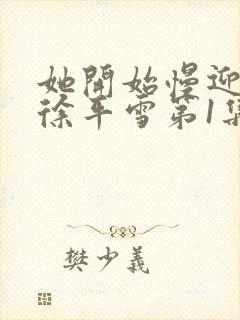 她開始慢迎
徐平雪第1集
樊少義